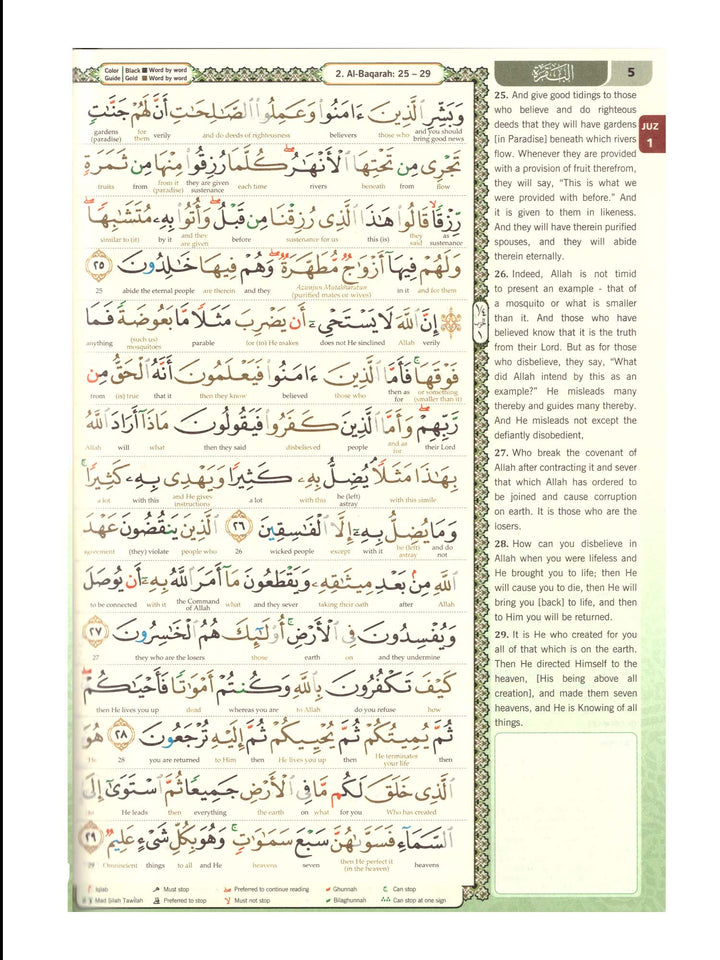 Color Guide: Black Word by word Gold Word by word
2. Al-Baqarah: 25 – 29
البقرة
5
JUZ 1
وَبَشِّرِ الَّذِينَ ءَامَنُوا وَعَمِلُوا الصَّالِحَاتِ أَنَّ لَهُمْ جَنَّاتٍ
and you should bring good news those who believers and do deeds of righteousness verily for them gardens (paradise)
تَجْرِى مِن تَحْتِهَا الْأَنْهَارُ كُلَّمَا رُزِقُوا مِنْهَا مِن ثَمَرَةٍ
flow from beneath rivers each time they are given sustenance from it (paradise) from fruits
رِّزْقًا قَالُوا هَـٰذَا الَّذِى رُزِقْنَا مِن قَبْلُ وَأُتُوا بِهِۦ مُتَشَابِهًا
as sustenance they said this (is) sustenance for us before and they are given by it similar to (it)
وَلَهُمْ فِيهَا أَزْوَاجٌ مُّطَهَّرَةٌ وَهُمْ فِيهَا خَالِدُونَ ٢٥
and for them in it Azwajun Mutahharatun (purified mates or wives) and they are therein abide the eternal people 25
إِنَّ اللَّهَ لَا يَسْتَحْىِۦ أَن يَضْرِبَ مَثَلًا مَّا بَعُوضَةً فَمَا
verily Allah does not He sinclined for (to) He makes parable (such us) mosquitoes anything
فَوْقَهَا فَأَمَّا الَّذِينَ ءَامَنُوا فَيَعْلَمُونَ أَنَّهُ الْحَقُّ مِن
or something (smaller than it) then as for those who believed then they know that it (is) true from
رَّبِّهِمْ وَأَمَّا الَّذِينَ كَفَرُوا فَيَقُولُونَ مَاذَا أَرَادَ اللَّهُ
their Lord and as for people disbelieved then they said what will Allah
بِهَـٰذَا مَثَلًا يُضِلُّ بِهِۦ كَثِيرًا وَيَهْدِى بِهِۦ كَثِيرًا
with this simile he (left) astray with this a lot and He gives instructions with this a lot
وَمَا يُضِلُّ بِهِۦ إِلَّا الْفَاسِقِينَ ٢٦ الَّذِينَ يَنقُضُونَ عَهْدَ
and do not he (left) astray with it except wicked people 26 people who (they) violate agreement
اللَّهِ مِن بَعْدِ مِيثَاقِهِۦ وَيَقْطَعُونَ مَا أَمَرَ اللَّهُ بِهِۦ أَن يُوصَلَ
Allah after taking their oath and they sever what the Command of Allah with it to be connected
وَيُفْسِدُونَ فِى الْأَرْضِ أُولَـٰئِكَ هُمُ الْخَاسِرُونَ ٢٧
and they undermine on earth those they who are the losers 27
كَيْفَ تَكْفُرُونَ بِاللَّهِ وَكُنتُمْ أَمْوَاتًا فَأَحْيَاكُمْ
how do you refuse to Allah whereas you are dead then He lives you up
ثُمَّ يُمِيتُكُمْ ثُمَّ يُحْيِيكُمْ ثُمَّ إِلَيْهِ تُرْجَعُونَ ٢٨ هُوَ
then He terminates your life then He lives you up then to Him you are returned 28 He
الَّذِى خَلَقَ لَكُم مَّا فِى الْأَرْضِ جَمِيعًا ثُمَّ اسْتَوَىٰ إِلَى
Who has created for you what on the earth everything then He leads to
السَّمَاءِ فَسَوَّاهُنَّ سَبْعَ سَمَاوَاتٍ وَهُوَ بِكُلِّ شَىْءٍ عَلِيمٌ ٢٩
heavens then He perfect it (in the heaven) seven heavens and He to all things Omniscient 29
Iqlab Must stop Preferred to continue reading Ghunnah Can stop
Mad Silah Tawilah Preferred to stop Must not stop Bilaghunnah Can stop at one sign
25. And give good tidings to those
who believe and do righteous
deeds that they will have gardens
[in Paradise] beneath which rivers
flow. Whenever they are provided
with a provision of fruit therefrom,
they will say, “This is what we
were provided with before.” And
it is given to them in likeness.
And they will have therein purified
spouses, and they will abide
therein eternally.
26. Indeed, Allah is not timid
to present an example - that of
a mosquito or what is smaller
than it. And those who have
believed know that it is the truth
from their Lord. But as for those
who disbelieve, they say, “What
did Allah intend by this as an
example?” He misleads many
thereby and guides many thereby.
And He misleads not except the
defiantly disobedient,
27. Who break the covenant of
Allah after contracting it and sever
that which Allah has ordered to
be joined and cause corruption
on earth. It is those who are the
losers.
28. How can you disbelieve in
Allah when you were lifeless and
He brought you to life; then He
will cause you to die, then He will
bring you [back] to life, and then
to Him you will be returned.
29. It is He who created for you
all of that which is on the earth.
Then He directed Himself to the
heaven, [His being above all
creation], and made them seven
heavens, and He is Knowing of all
things.